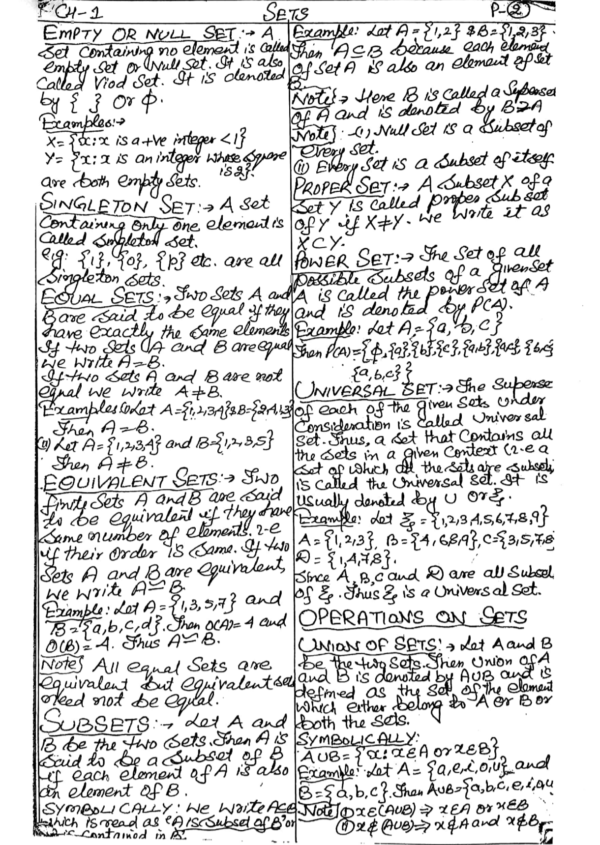 CH-1 SETS P-2
EMPTY OR NULL SET:→ A
Set Containing no element is called
empty Set or Null Set. It is also
Called Viod Set. It is denoted
by { } Or ϕ.
Examples:→
X= {x: x is a +ve integer <1}
Y= {x: x is an integer whose square
is 2}.
are both empty Sets.
SINGLETON SET:→ A Set
Containing only one element is
Called Singleton Set.
e.g: {1}, {0}, {p} etc. are all
Singleton Sets.
EQUAL SETS:→ Two Sets A and
B are said to be equal if they
have exactly the same elements
If two Sets A and B are equal
we write A=B.
If two Sets A and B are not
equal we write A≠B.
Examples (i) Let A={1,2,3,4} & B={2,4,1,3}
Then A=B.
(ii) Let A={1,2,3,4} and B={1,2,3,5}
Then A≠B.
EQUIVALENT SETS:→ Two
finite Sets A and B are said
to be equivalent if they have
same number of elements. i-e
if their order is same. If two
Sets A and B are equivalent,
we write A≃B.
Example: Let A={1,3,5,7} and
B={a,b,c,d}. Then O(A)=4 and
O(B)=4. Thus A≃B.
Note} All equal Sets are
equivalent but equivalent sets
need not be equal.
SUBSETS:→ Let A and
B be the two Sets. Then A is
said to be a Subset of B
if each element of A is also
an element of B.
SYMBOLICALLY: We Write A⊆B
which is read as "A is Subset of B" or
contained in B.
Example: Let A={1,2} & B={1,2,3}.
Then A⊆B because each element
of Set A is also an element of Set
B.
Note}→ Here B is called a Superset
of A and is denoted by B⊇A
Note} (i) Null Set is a Subset of
every Set.
(ii) Every Set is a Subset of itself.
PROPER SET:→ A Subset X of a
Set Y is called proper Subset
of Y if X≠Y. We write it as
X⊂Y.
POWER SET:→ The Set of all
possible Subsets of a given Set
A is called the power Set of A
and is denoted by P(A).
Example: Let A={a,b,c}
Then P(A)={ϕ,{a},{b},{c},{a,b},{a,c},{b,c}
{a,b,c}}
UNIVERSAL SET:→ The Superse
of each of the given Sets under
Consideration is called Universal
Set. Thus, a Set that Contains all
the Sets in a given Context (i-e a
Set of which all the sets are subset)
is called the Universal Set. It is
usually denoted by U or ξ.
Example: Let ξ={1,2,3,4,5,6,7,8,9}
A={1,2,3}, B={4,6,8,9}, C={3,5,7,8}
D={1,4,7,8}.
Since A,B,C and D are all Subset
of ξ. Thus ξ is a Universal Set.
OPERATIONS ON SETS
UNION OF SETS:→ Let A and B
be the two Sets. Then Union of A
and B is denoted by A∪B and is
defined as the Set of the element
which either belong to A or B or
both the Sets.
SYMBOLICALLY:
A∪B={x: x∈A or x∈B}
Example: Let A={a,e,i,o,u} and
B={a,b,c}. Then A∪B={a,b,c,e,i,o,u
Note} (i) x∈(A∪B)⇒ x∈A or x∈B
(ii) x∉(A∪B)⇒ x∉A and x∉B